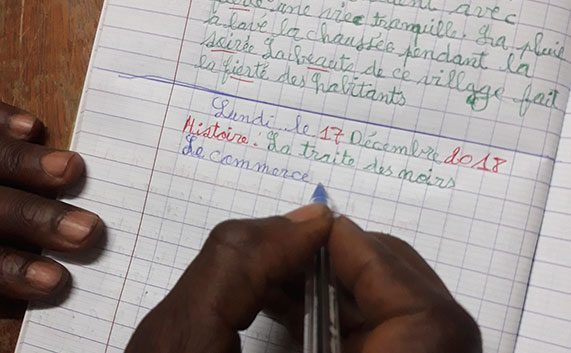 avec
une vie tranquille. La pluie
a lavé la chaussée pendant la
soirée La beauté de ce village fait
la fierté des habitants
Lundi le 17 Décembre 2018
Histoire: La traite des noirs
Le commerce